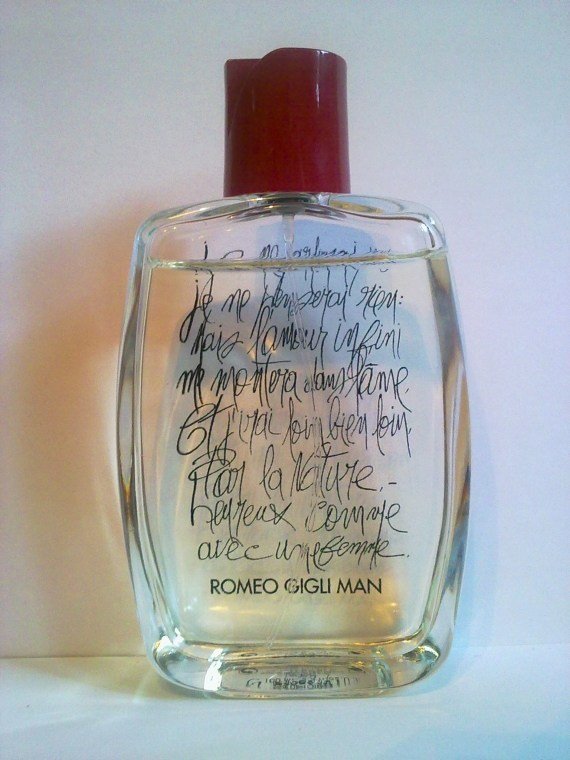 je ne penserai rien:
mais l'amour infini
me montera dans l'âme.
Et j'irai loin bien loin,
Par la Nature,-
heureux comme
avec une femme.
ROMEO GIGLI MAN